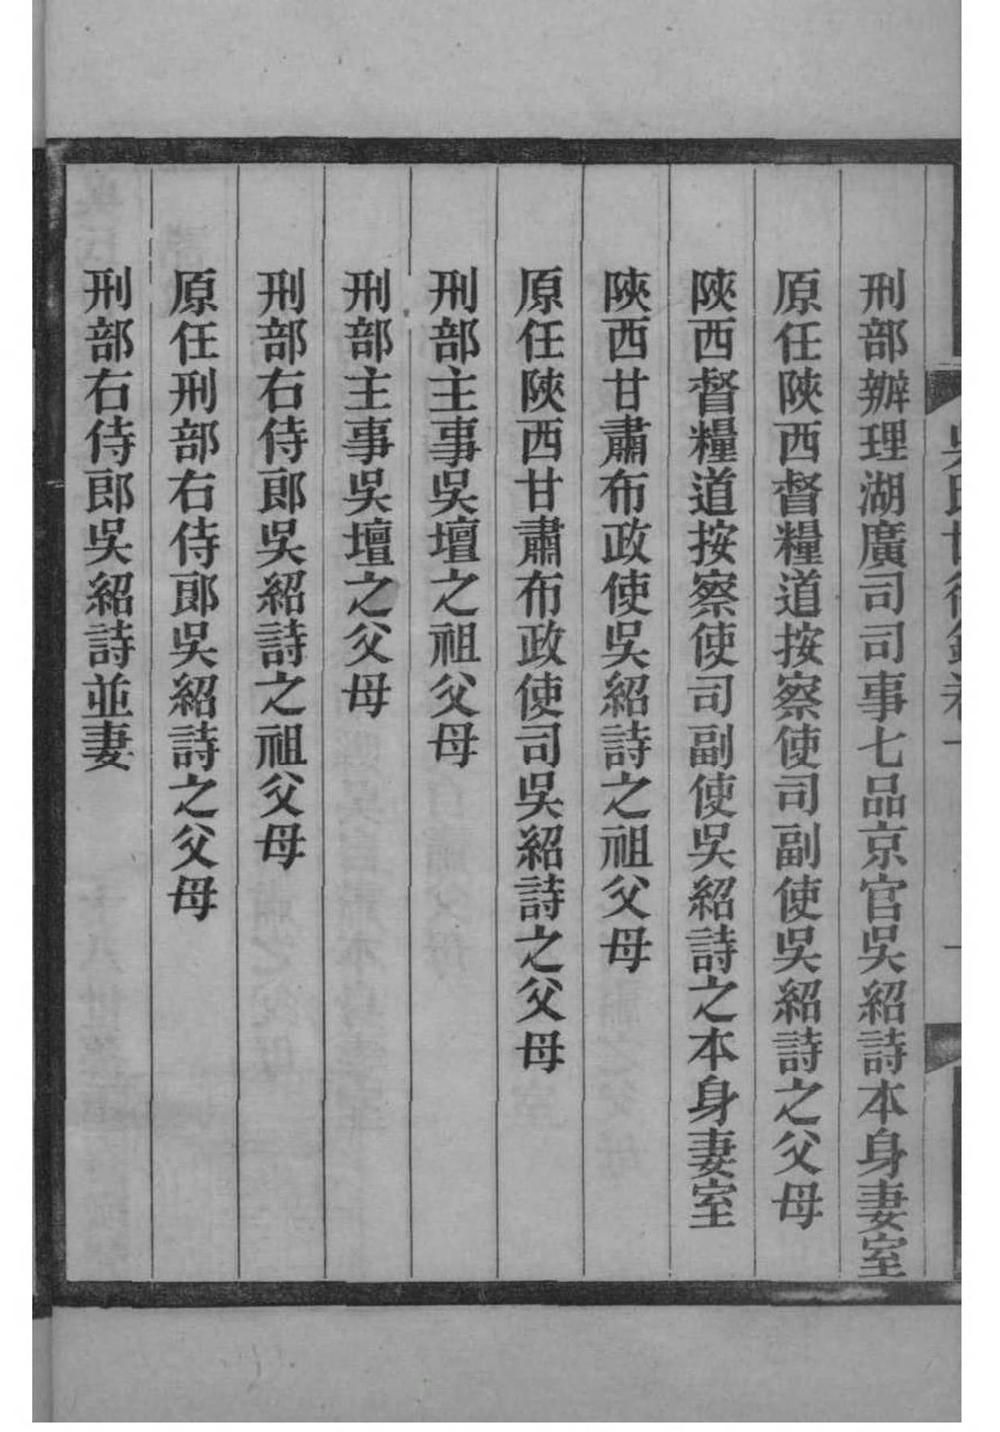 刑部辦理湖廣司司事七品京官吳紹詩本身妻室
原任陝西督糧道按察使司副使吳紹詩之父母
陝西督糧道按察使司副使吳紹詩之本身妻室
陝西甘肅布政使吳紹詩之祖父母
原任陝西甘肅布政使司吳紹詩之父母
刑部主事吳壇之祖父母
刑部主事吳壇之父母
刑部右侍郎吳紹詩之祖父母
原任刑部右侍郎吳紹詩之父母
刑部右侍郎吳紹詩並妻